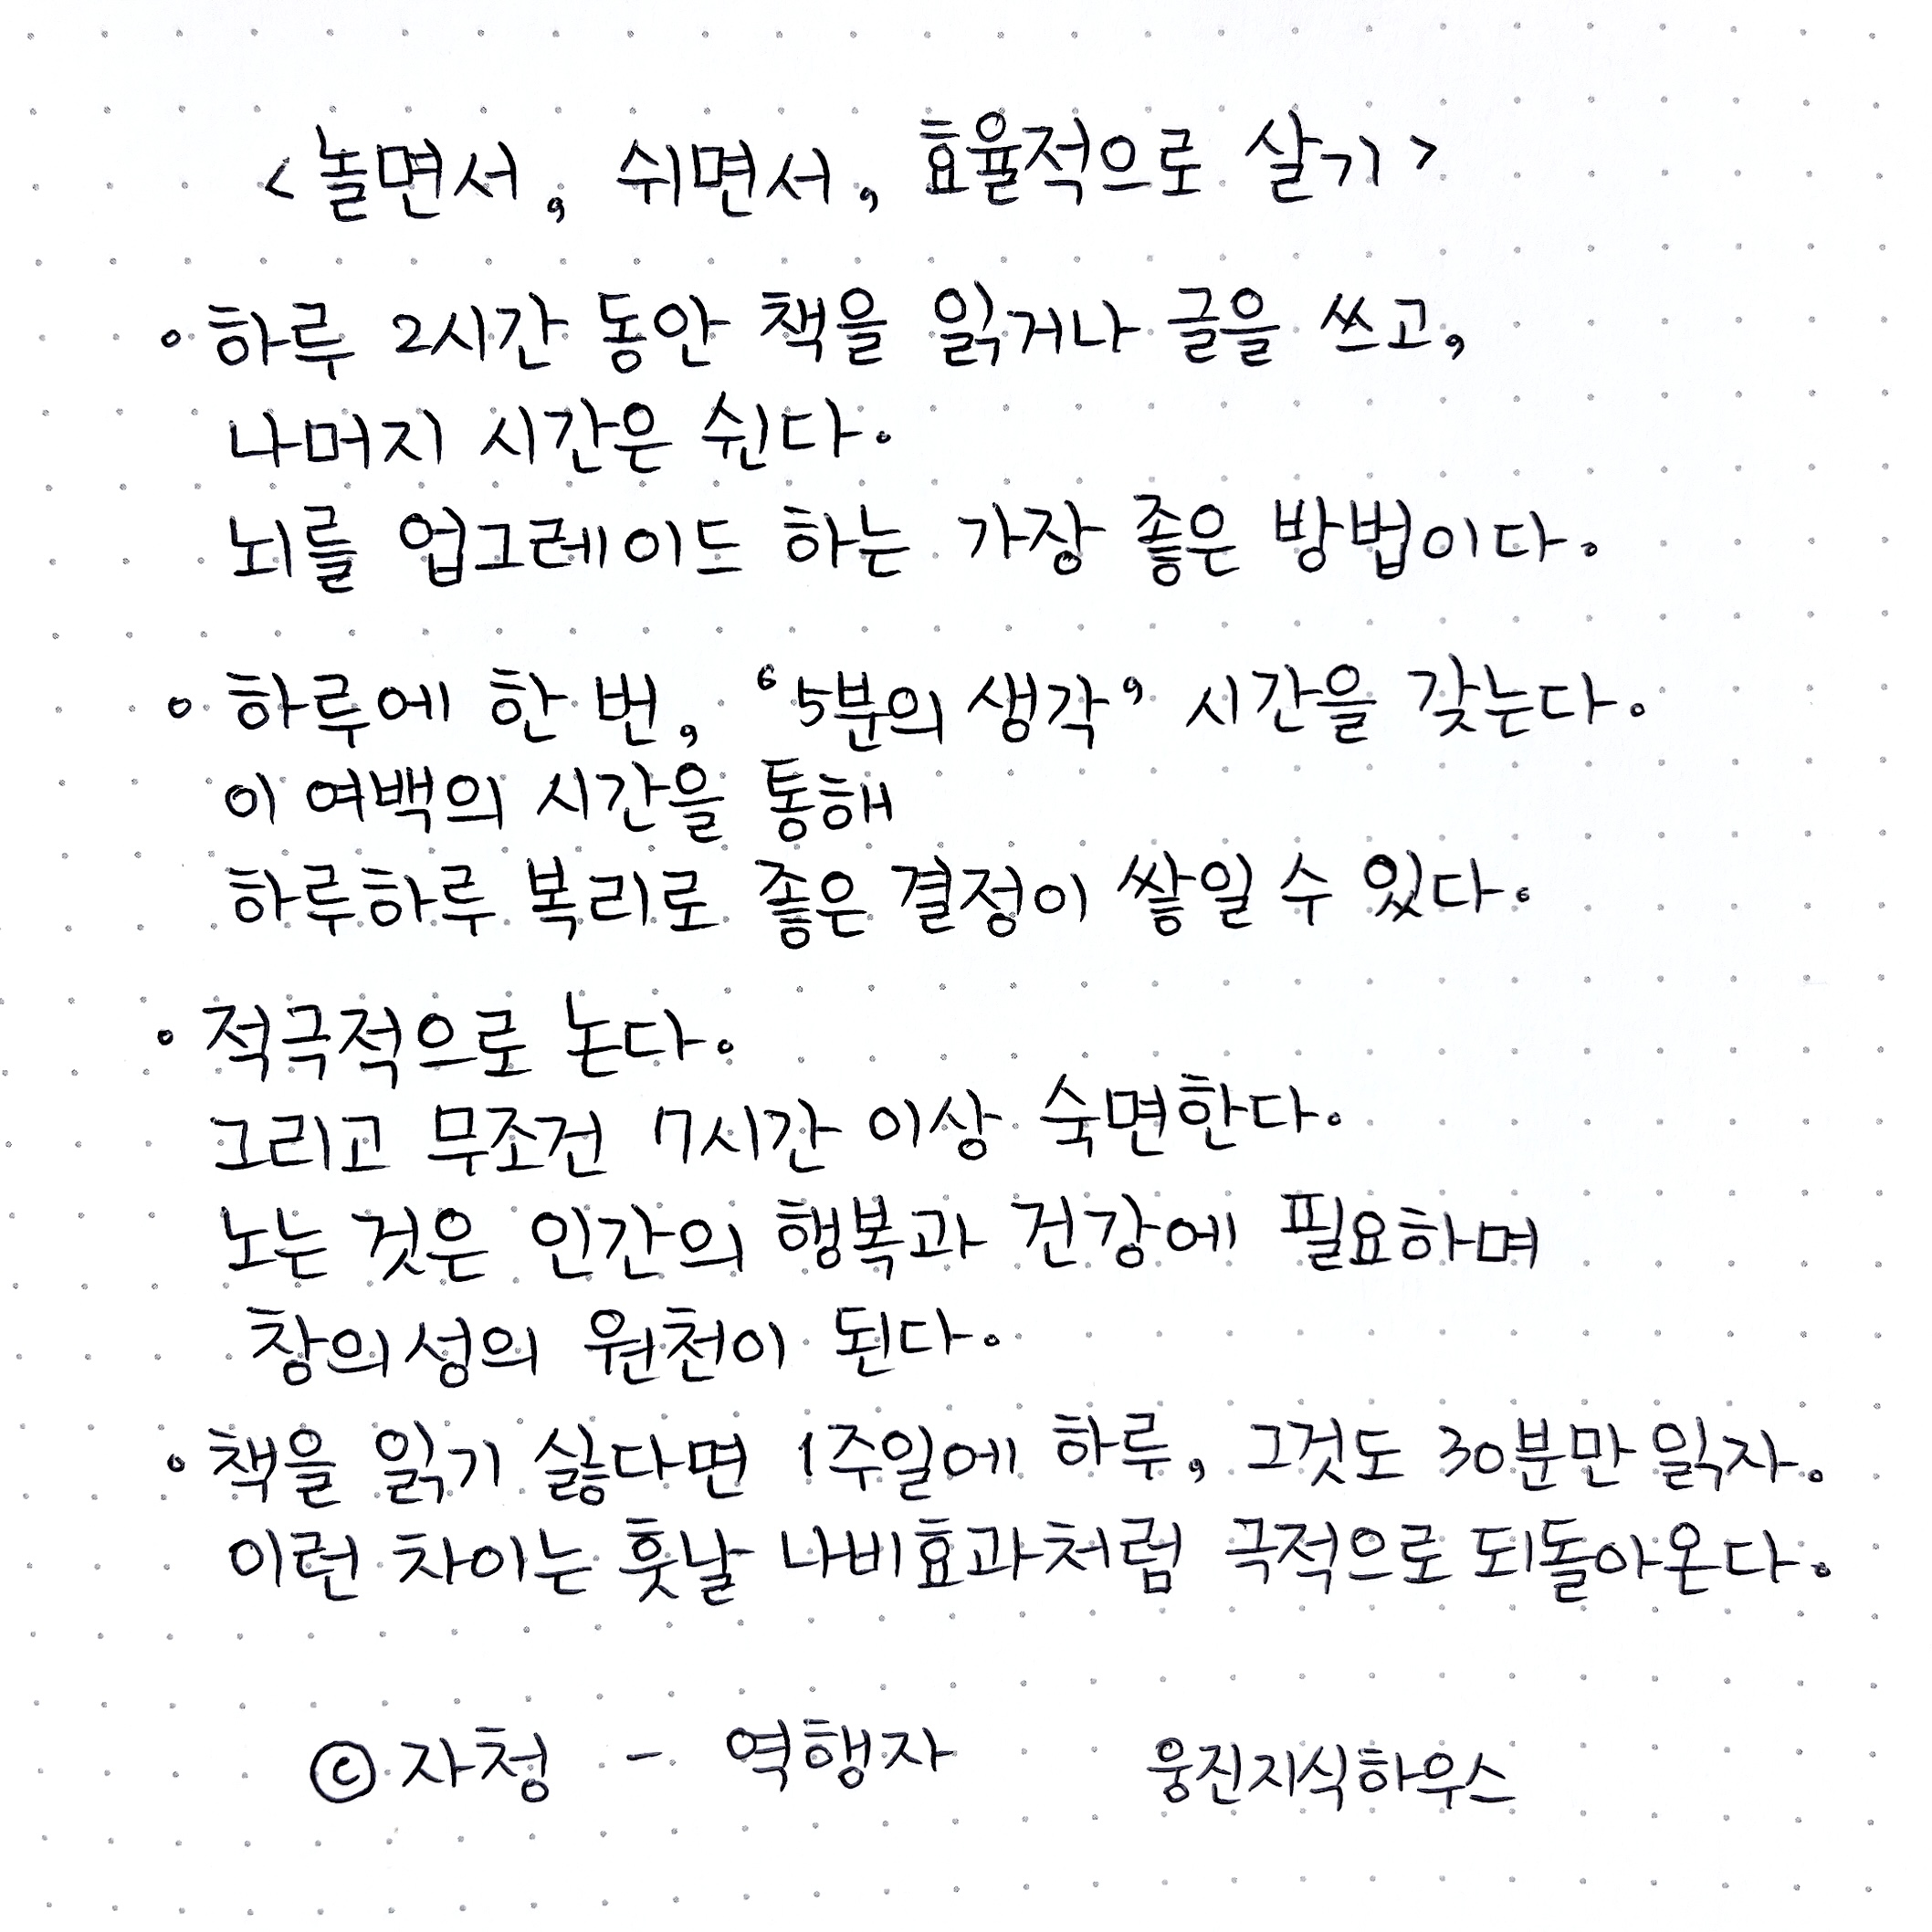 <놀면서, 쉬면서, 효율적으로 살기>
• 하루 2시간 동안 책을 읽거나 글을 쓰고,
나머지 시간은 쉰다.
뇌를 업그레이드 하는 가장 좋은 방법이다.
• 하루에 한 번, ‘5분의 생각’ 시간을 갖는다.
이 여백의 시간을 통해
하루하루 복리로 좋은 결정이 쌓일 수 있다.
• 적극적으로 논다.
그리고 무조건 7시간 이상 숙면한다.
노는 것은 인간의 행복과 건강에 필요하며
창의성의 원천이 된다.
• 책을 읽기 싫다면 1주일에 하루, 그것도 30분만 읽자.
이런 차이는 훗날 나비효과처럼 극적으로 되돌아온다.
© 자청 - 역행자 웅진지식하우스